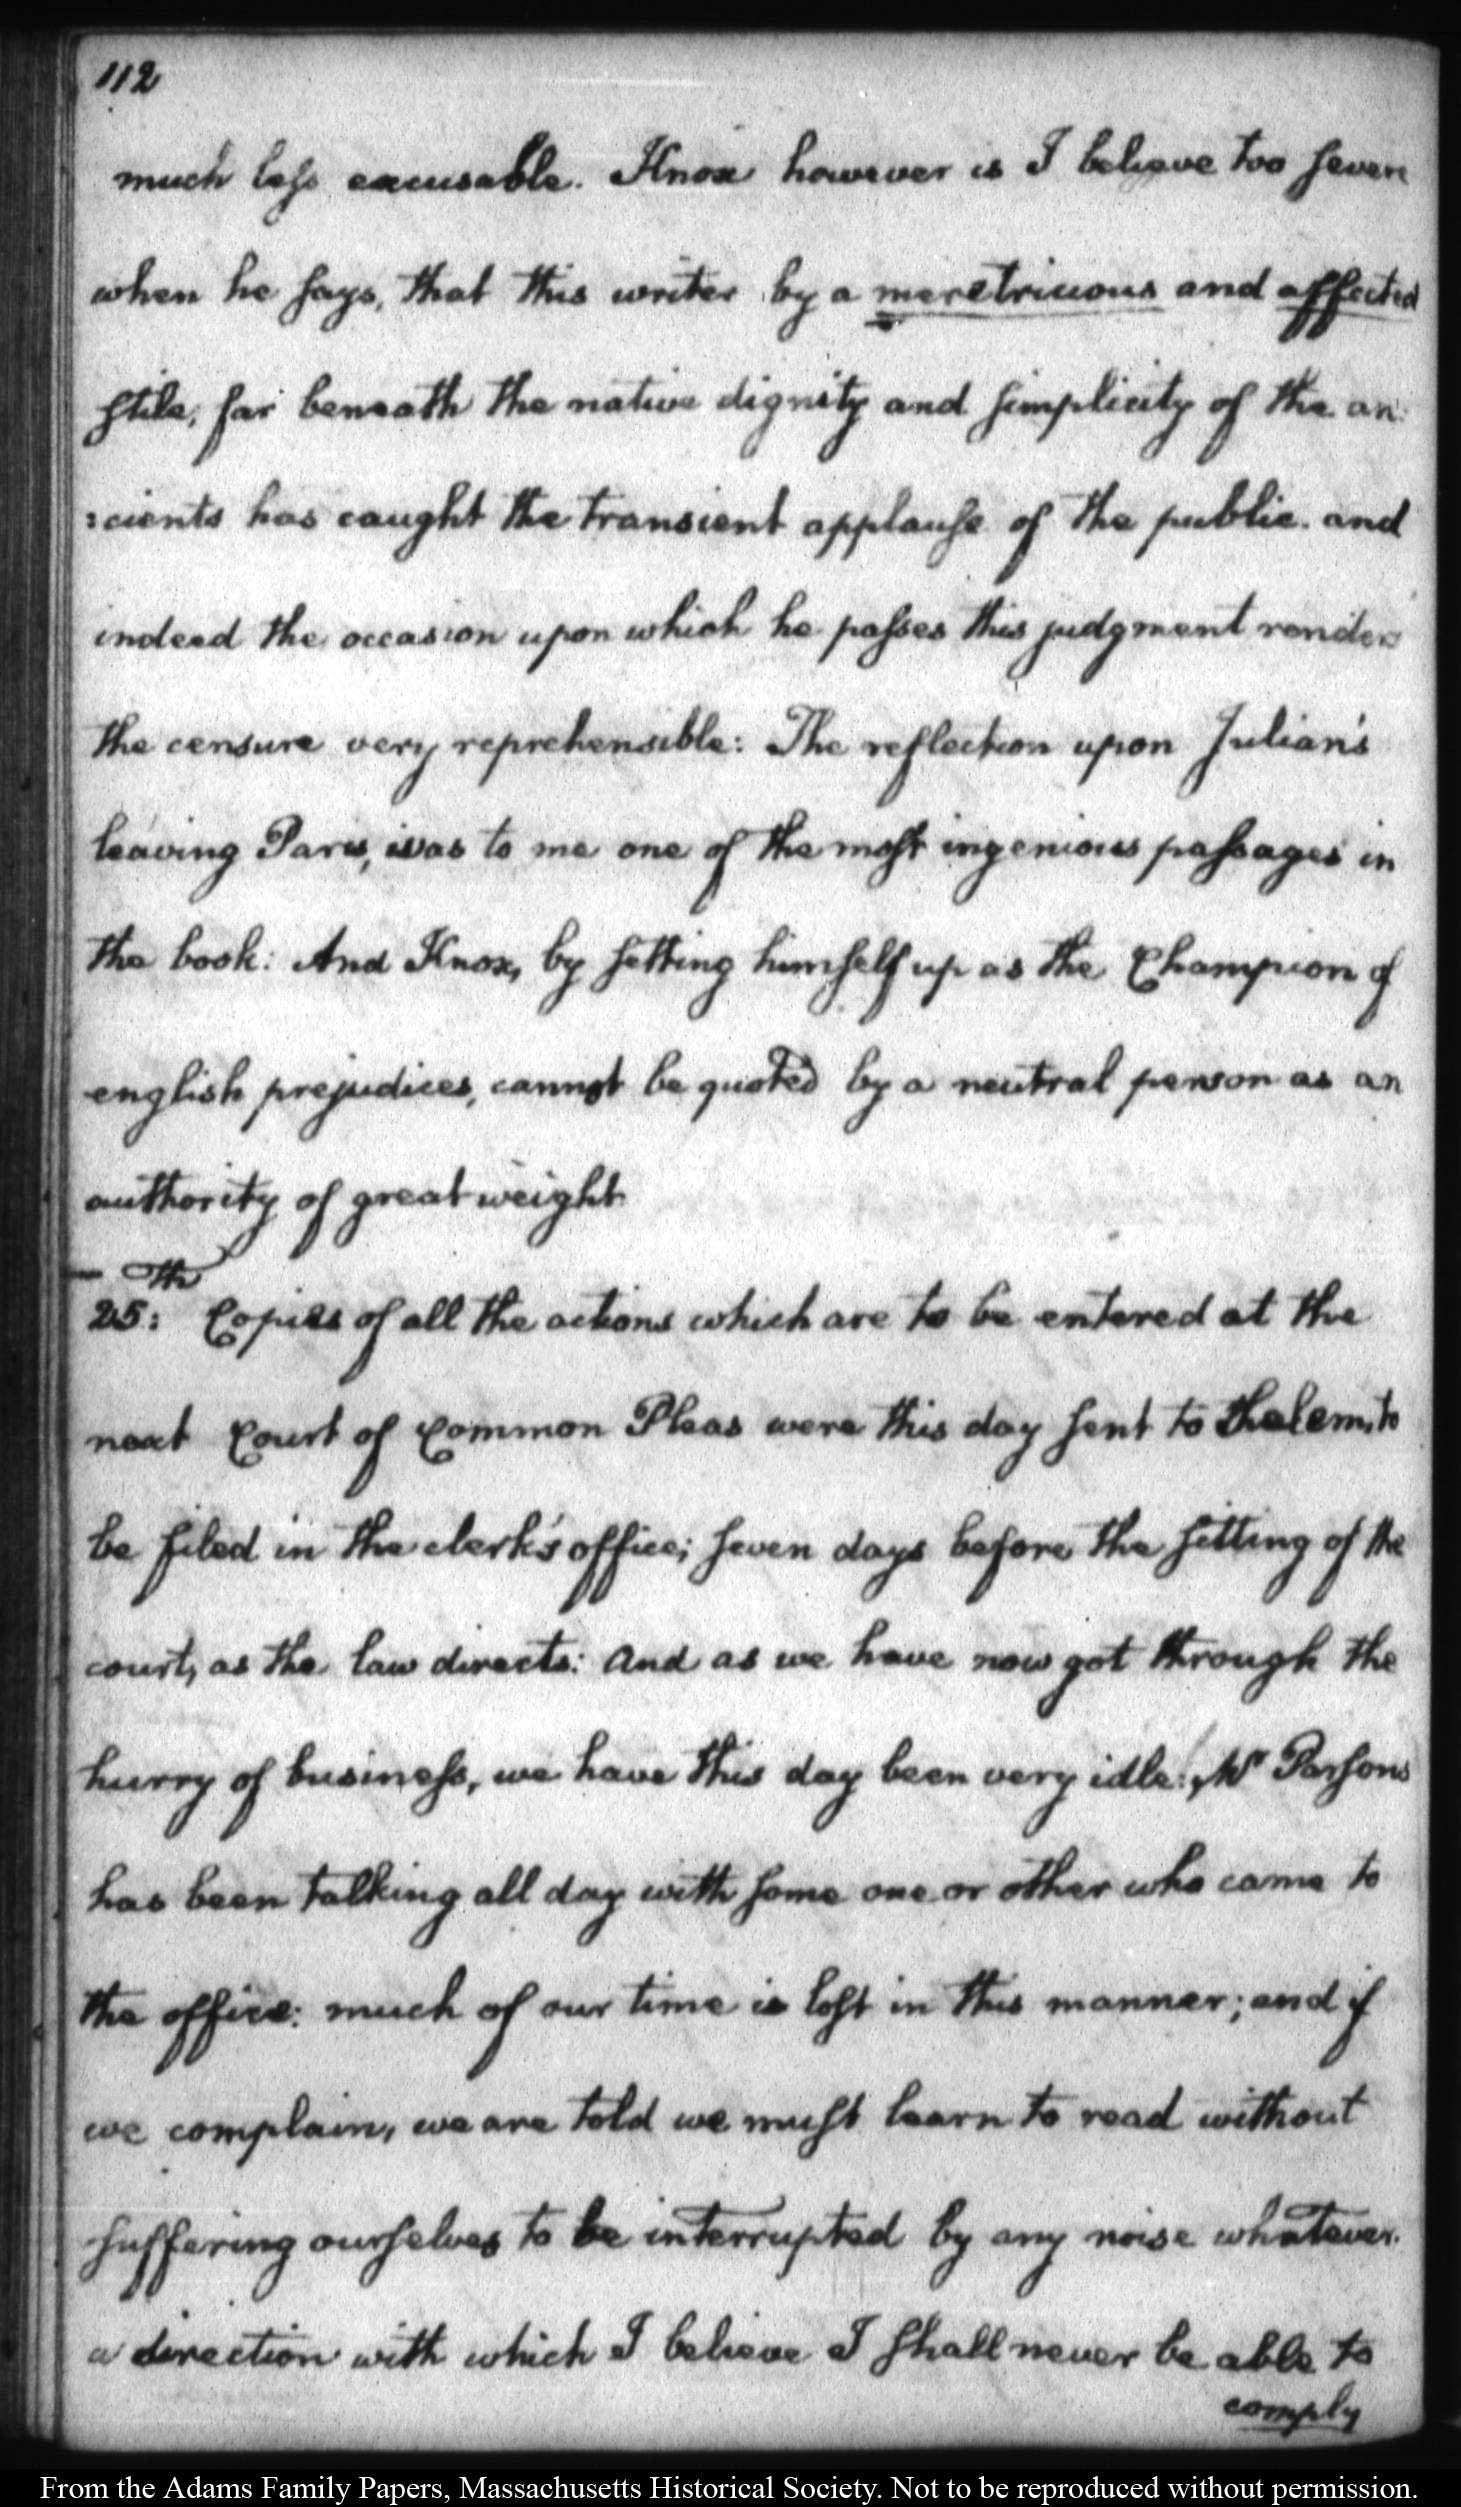 112
much less excusable. Knox however is I believe too severe
when he says, that this writer by a meretricious and affected
stile, far beneath the native dignity and simplicity of the an:
:cients has caught the transient applause of the public. and
indeed the occasion upon which he passes this judgment renders
the censure very reprehensible: The reflection upon Julian's
leaving Paris, was to me one of the most ingenious passages in
the book: And Knox, by setting himself up as the Champion of
english prejudices, cannot be quoted by a neutral person as an
authority of great weight
25:th Copies of all the actions which are to be entered at the
next Court of Common Pleas were this day sent to Shalem, to
be filed in the clerk's office; seven days before the sitting of the
court, as the law directs: And as we have now got through the
hurry of business, we have this day been very idle: Mr Parsons
has been talking all day with some one or other who came to
the office: much of our time is lost in this manner; and if
we complain, we are told we must learn to read without
suffering ourselves to be interrupted by any noise whatever.
a direction with which I believe I shall never be able to
comply
From the Adams Family Papers, Massachusetts Historical Society. Not to be reproduced without permission.